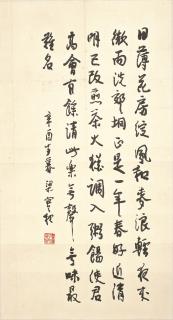 日薄花房綻風和麥浪輕夜來
微雨洗郊坰正是一年春好近清
明已改煎茶火猶調入粥餳使君
高會有餘清此樂無聲無味最
難名
辛酉 梁